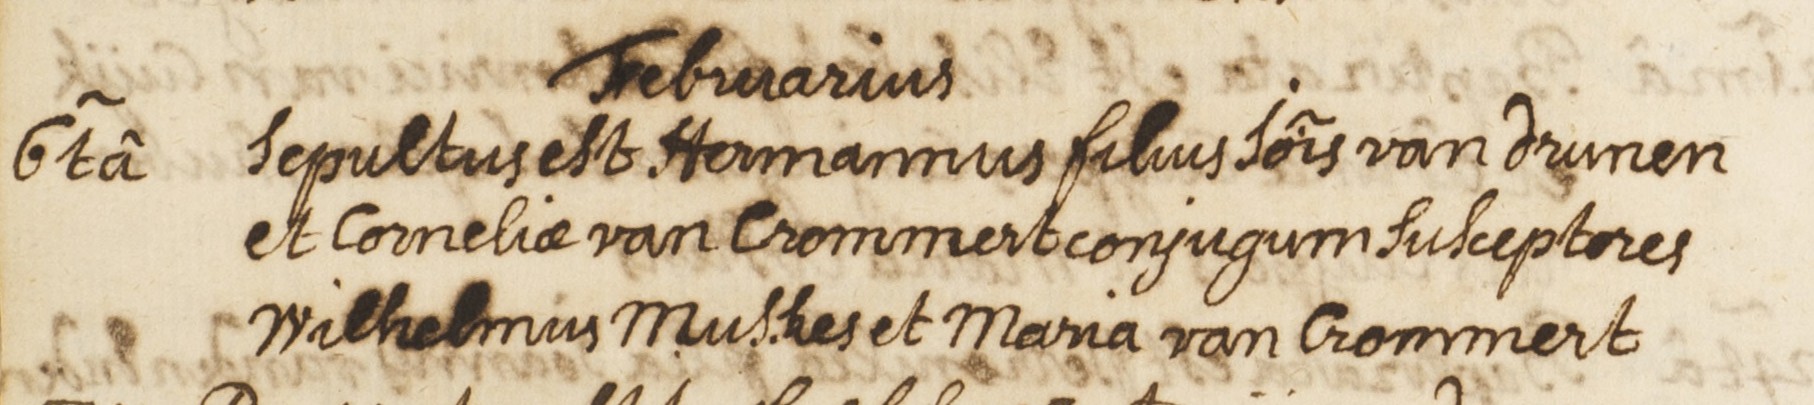 Februarius
6tâ Sepultus est Hermannus filius Jois van drunen
et Corneliæ van Crommert conjugum Susceptores
Wilhelmus Muskes et Maria van Crommert